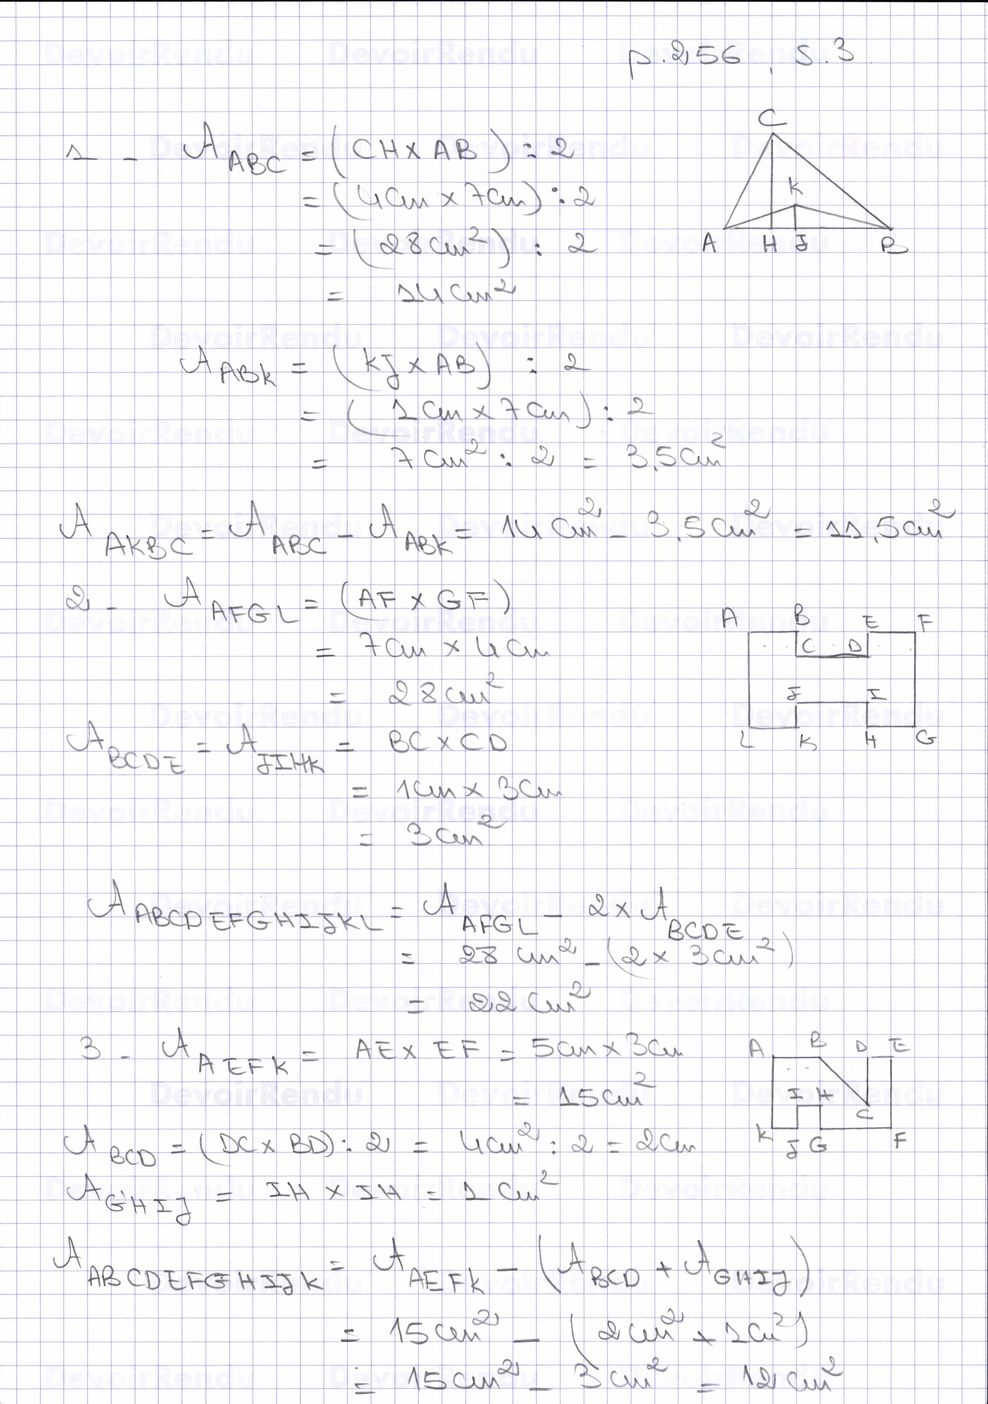 p.256, S.3
1 - A ABC = (CH × AB) : 2
= (4cm × 7cm) : 2
= (28cm²) : 2
= 14cm²
C
K
A H J B
A ABK = (KJ × AB) : 2
= (1cm × 7cm) : 2
= 7cm² : 2 = 3,5cm²
A AKBC = A ABC - A ABK = 14cm² - 3,5cm² = 11,5cm²
2 - A AFGL = (AF × GF)
= 7cm × 4cm
= 28cm²
A B E F
C D
J I
L K H G
A BCDE = A JIHK = BC × CD
= 1cm × 3cm
= 3cm²
A ABCDEFGHIJKL = A AFGL - 2 × A BCDE
= 28cm² - (2 × 3cm²)
= 22cm²
3 - A AEFK = AE × EF = 5cm × 3cm
= 15cm²
A B D E
I H
C
K J G F
A BCD = (DC × BD) : 2 = 4cm² : 2 = 2cm
A GHIJ = IH × IH = 1cm²
A ABCDEFGHIJK = A AEFK - (A BCD + A GHIJ)
= 15cm² - (2cm² + 1cm²)
= 15cm² - 3cm² = 12cm²
DevoirRendu